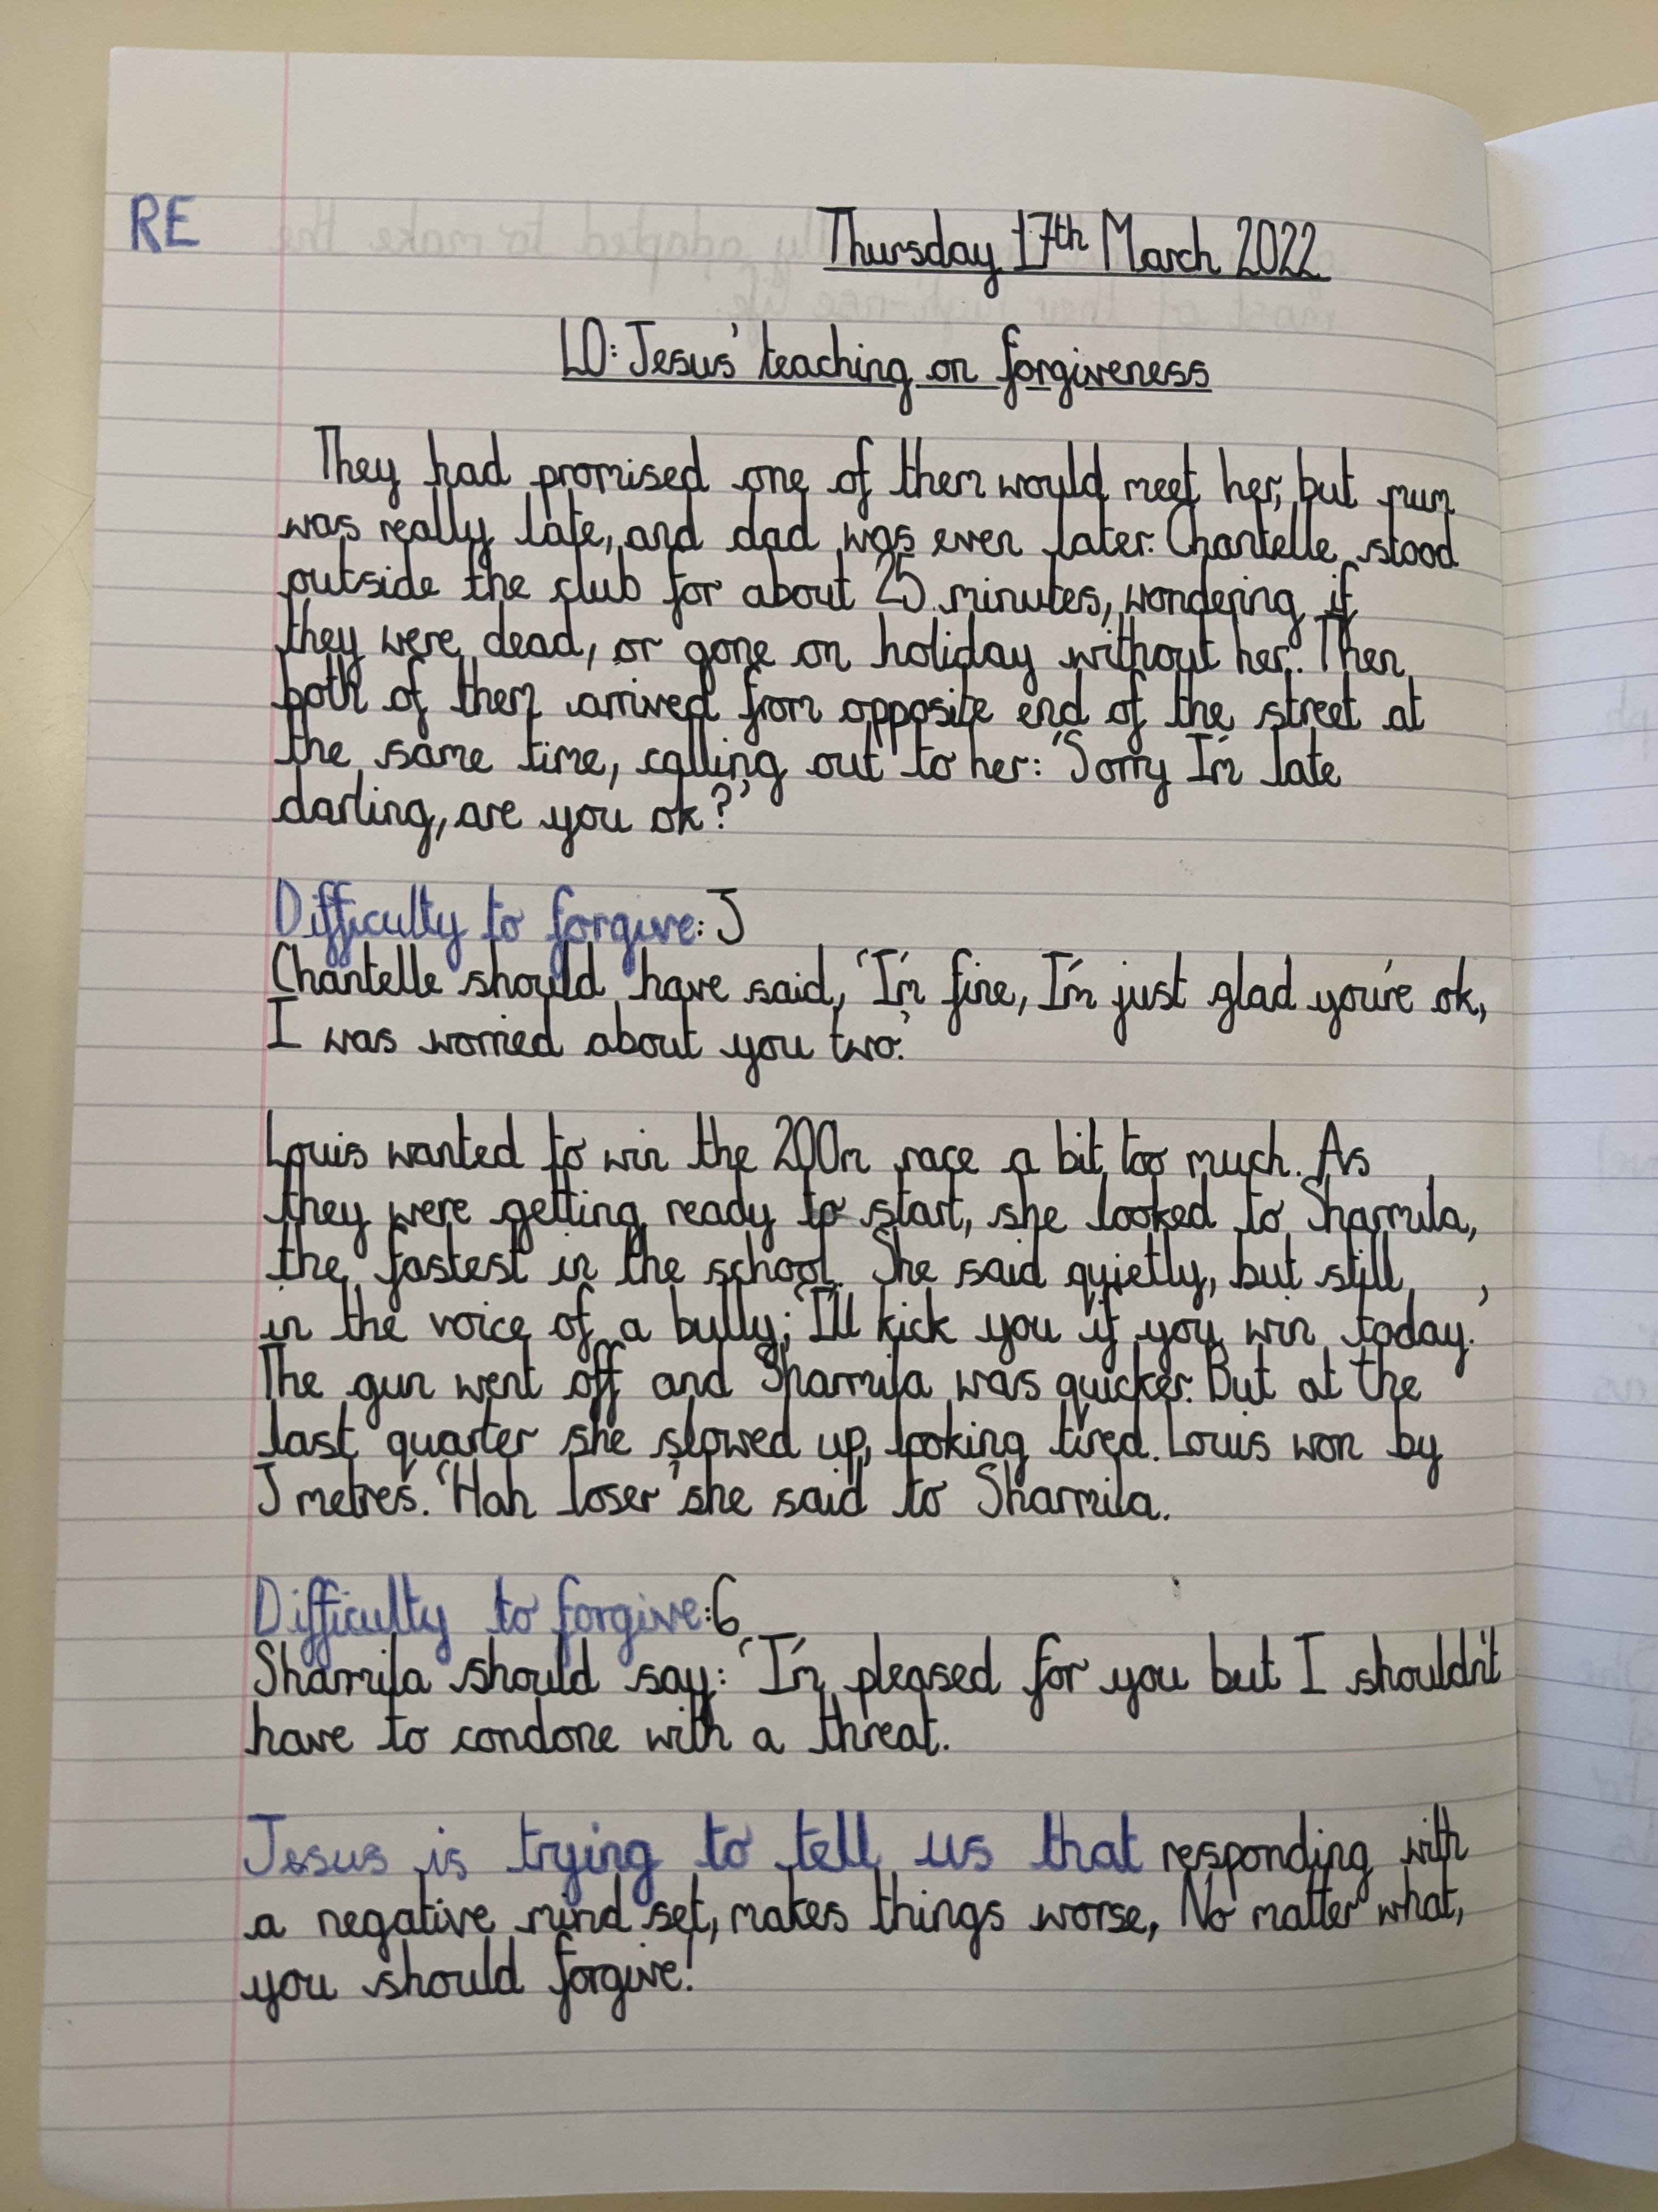 RE
Thursday 17th March 2022
LO: Jesus' teaching on forgiveness
They had promised one of them would meet her, but mum
was really late, and dad was even later. Chantelle stood
outside the club for about 25 minutes, wondering if
they were dead, or gone on holiday without her. Then
both of them arrived from opposite end of the street at
the same time, calling out to her: 'Sorry I'm late
darling, are you ok?'
Difficulty to forgive: 
Chantelle should have said, 'I'm fine, I'm just glad you're ok,
I was worried about you two.'
Louis wanted to win the 200m race a bit too much. As
they were getting ready to start, she looked to Sharmila,
the fastest in the school. She said quietly, but still
in the voice of a bully; 'I'll kick you if you win today.'
The gun went off and Sharmila was quicker. But at the
last quarter she slowed up, looking tired. Louis won by
metres. 'Hah loser' she said to Sharmila.
Difficulty to forgive: 6
Sharmila should say: 'I'm pleased for you but I shouldn't
have to condone with a threat.
Jesus is trying to tell us that responding with
a negative mind set, makes things worse, No matter what,
you should forgive!